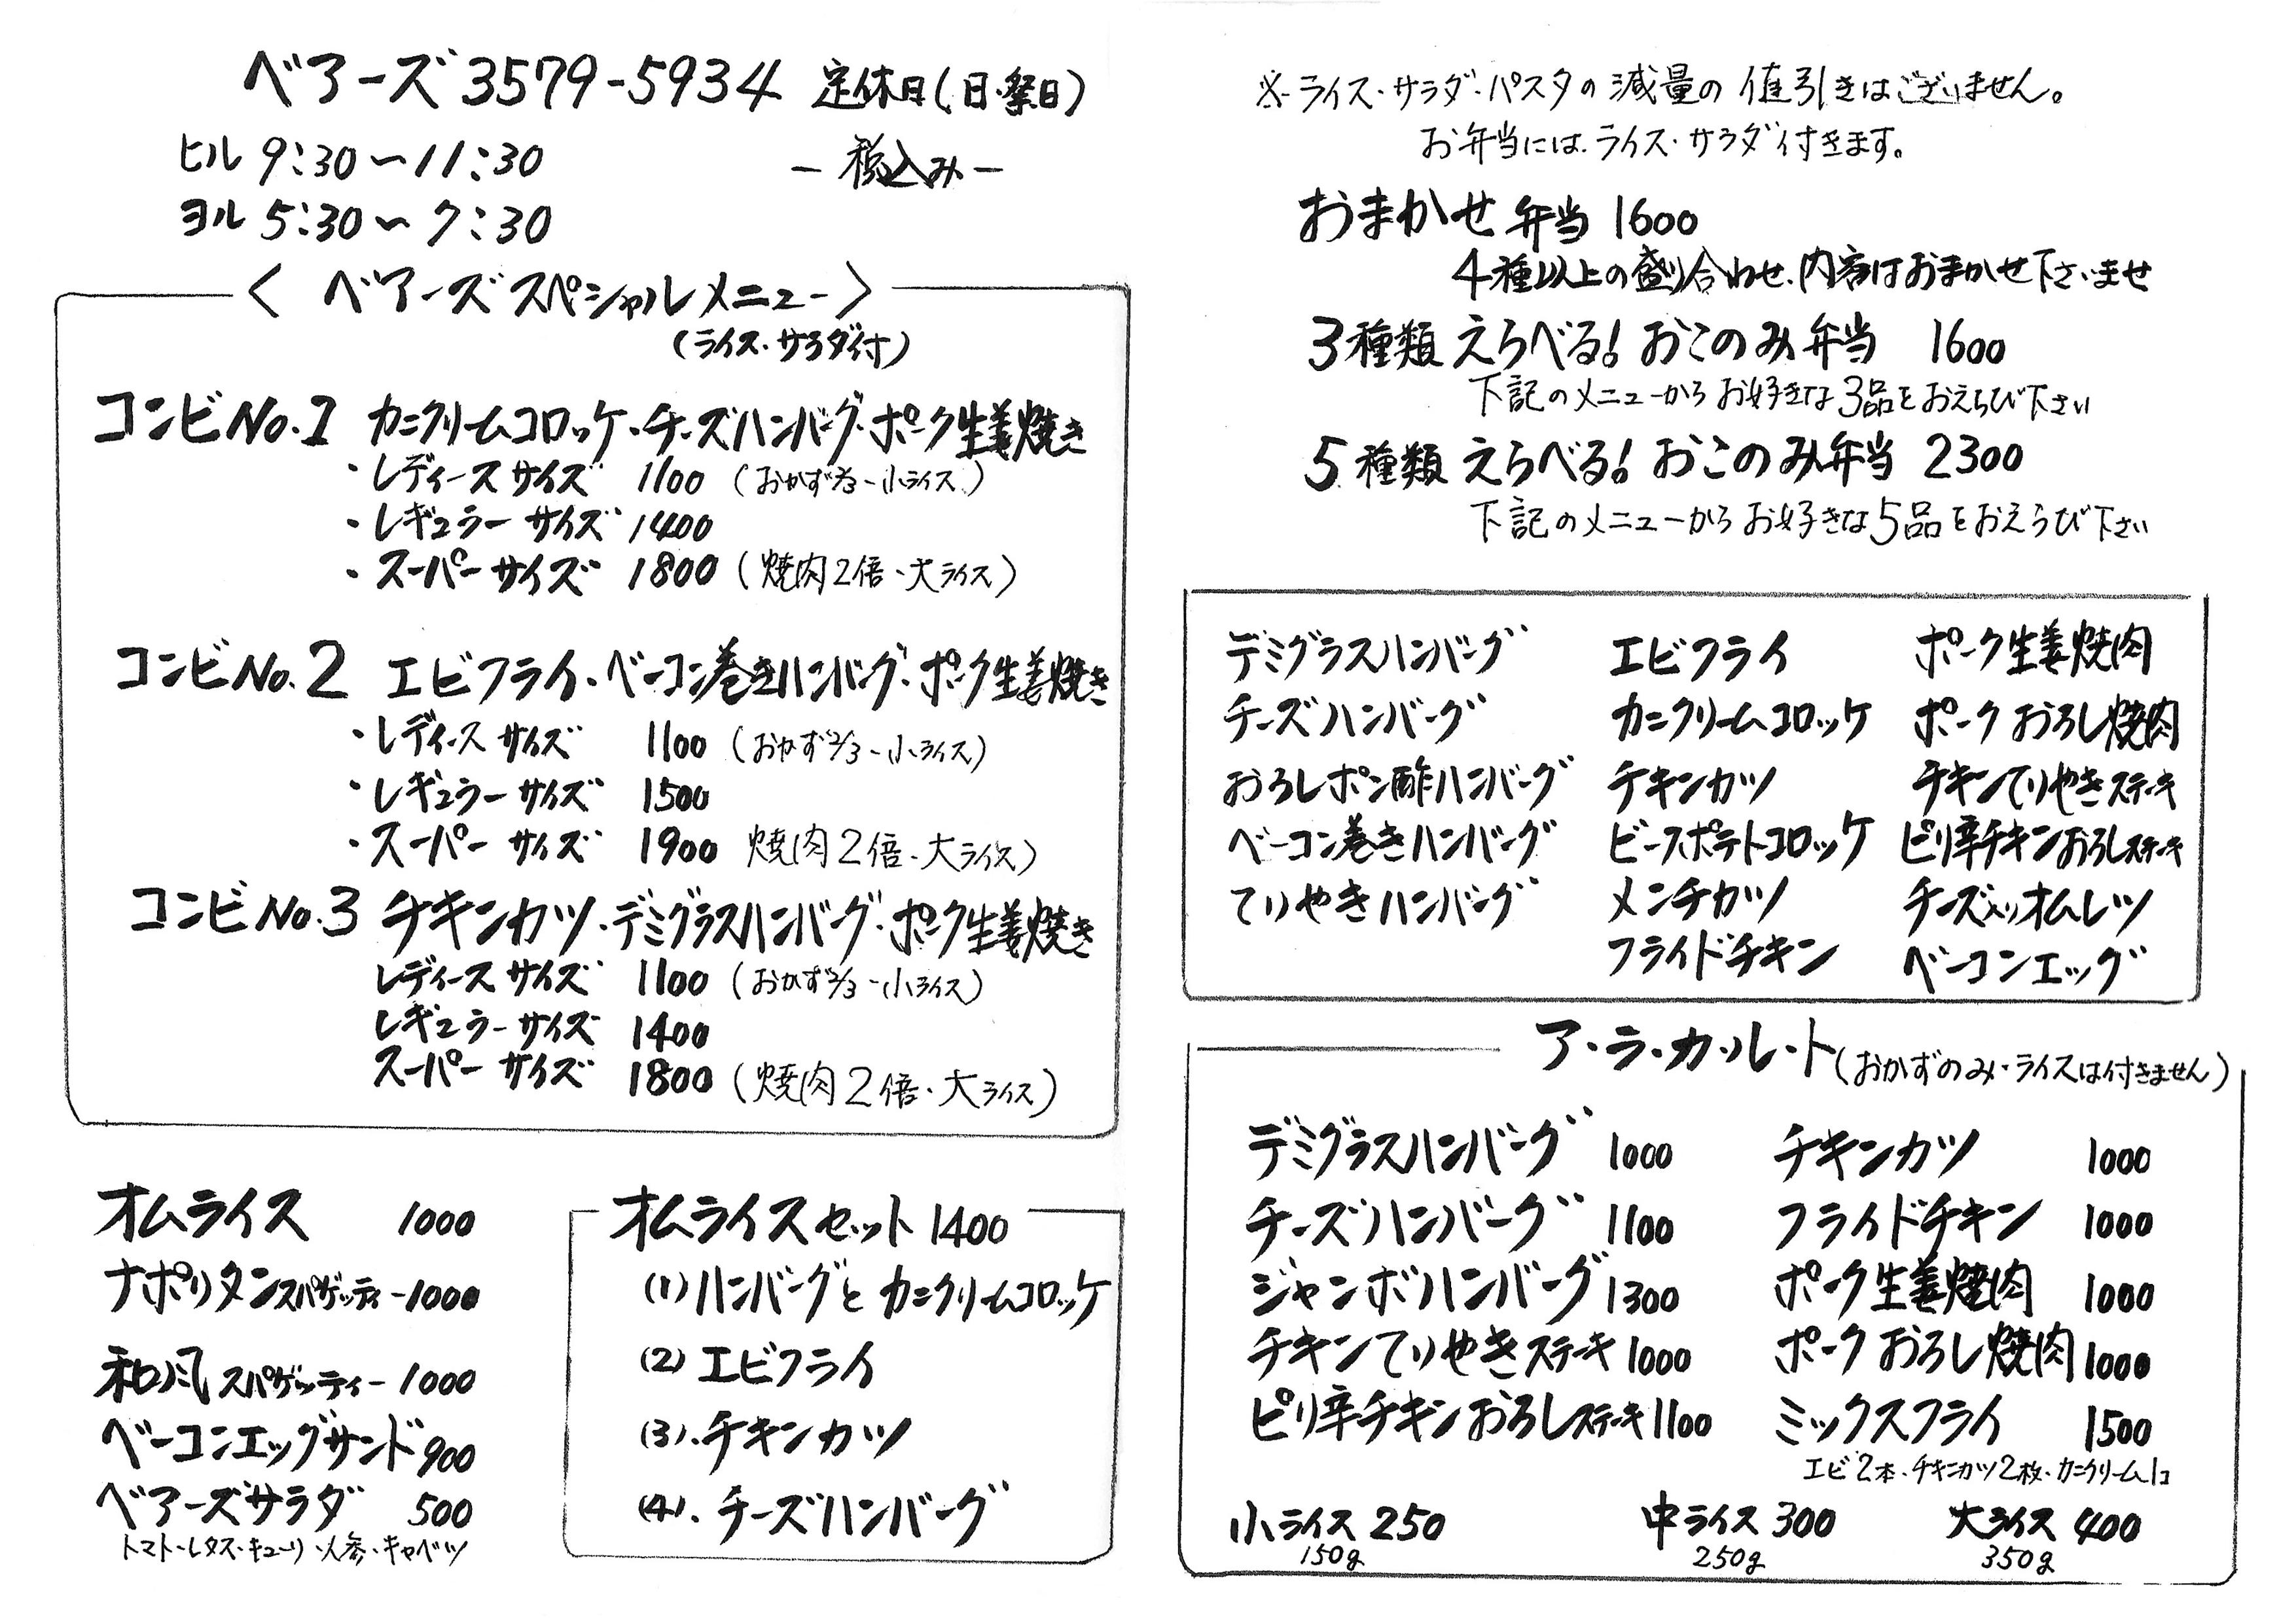 ベアーズ 3579-5934 定休日(日・祭日)
ヒル 9:30〜11:30
ー税込みー
ヨル 5:30〜7:30
〈 ベアーズスペシャルメニュー 〉
(ライス・サラダ付)
コンビNo.1 カニクリームコロッケ・チーズハンバーグ・ポーク生姜焼き
・レディースサイズ 1100 (おかず2/3-小ライス)
・レギュラーサイズ 1400
・スーパーサイズ 1800 (焼肉2倍・大ライス)
コンビNo.2 エビフライ・ベーコン巻きハンバーグ・ポーク生姜焼き
・レディースサイズ 1100 (おかず2/3-小ライス)
・レギュラーサイズ 1500
・スーパーサイズ 1900 焼肉2倍・大ライス)
コンビNo.3 チキンカツ・デミグラスハンバーグ・ポーク生姜焼き
レディースサイズ 1100 (おかず2/3-小ライス)
レギュラーサイズ 1400
スーパーサイズ 1800 (焼肉2倍・大ライス)
オムライス 1000
ナポリタンスパゲッティー1000
和風スパゲッティー1000
ベーコンエッグサンド900
ベアーズサラダ 500
トマト・レタス・キューリ・人参・キャベツ
オムライスセット1400
(1)ハンバーグとカニクリームコロッケ
(2)エビフライ
(3).チキンカツ
(4).チーズハンバーグ
※ライス・サラダ・パスタの減量の値引きはございません。
お弁当には、ライス・サラダ付きます。
おまかせ弁当 1600
4種以上の盛り合わせ、内容はおまかせ下さいませ
3種類えらべる!おこのみ弁当 1600
下記のメニューからお好きな3品をおえらび下さい
5種類えらべる!おこのみ弁当 2300
下記のメニューからお好きな5品をおえらび下さい
デミグラスハンバーグ エビフライ ポーク生姜焼肉
チーズハンバーグ カニクリームコロッケ ポークおろし焼肉
おろしポン酢ハンバーグ チキンカツ チキンてりやきステーキ
ベーコン巻きハンバーグ ビーフポテトコロッケ ピリ辛チキンおろしステーキ
てりやきハンバーグ メンチカツ チーズ入りオムレツ
フライドチキン ベーコンエッグ
ア・ラ・カ・ル・ト(おかずのみ・ライスは付きません)
デミグラスハンバーグ 1000 チキンカツ 1000
チーズハンバーグ 1100 フライドチキン 1000
ジャンボハンバーグ 1300 ポーク生姜焼肉 1000
チキンてりやきステーキ 1000 ポークおろし焼肉 1000
ピリ辛チキンおろしステーキ1100 ミックスフライ 1500
エビ2本・チキンカツ2枚・カニクリーム1コ
小ライス 250 中ライス 300 大ライス 400
150g 250g 350g